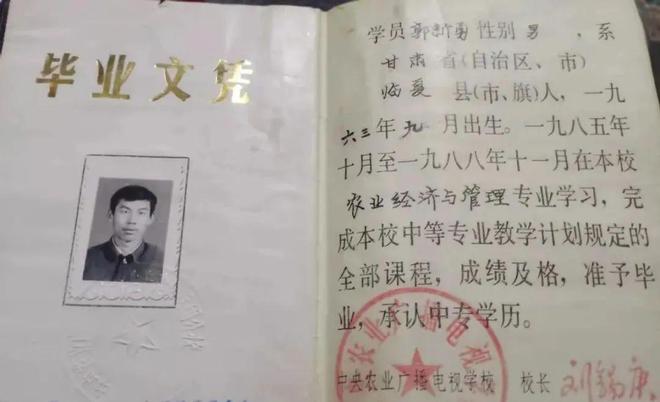 毕业文凭
学员郭新勇性别男，系
甘肃省(自治区、市)
临夏县(市、旗)人，一九
六三年九月出生。一九八五年
十月至一九八八年十一月在本校
农业经济与管理专业学习，完
成本校中等专业教学计划规定的
全部课程，成绩及格，准予毕
业，承认中专学历。
农业广播电视
中央农业广播电视学校 校长 刘锡庚